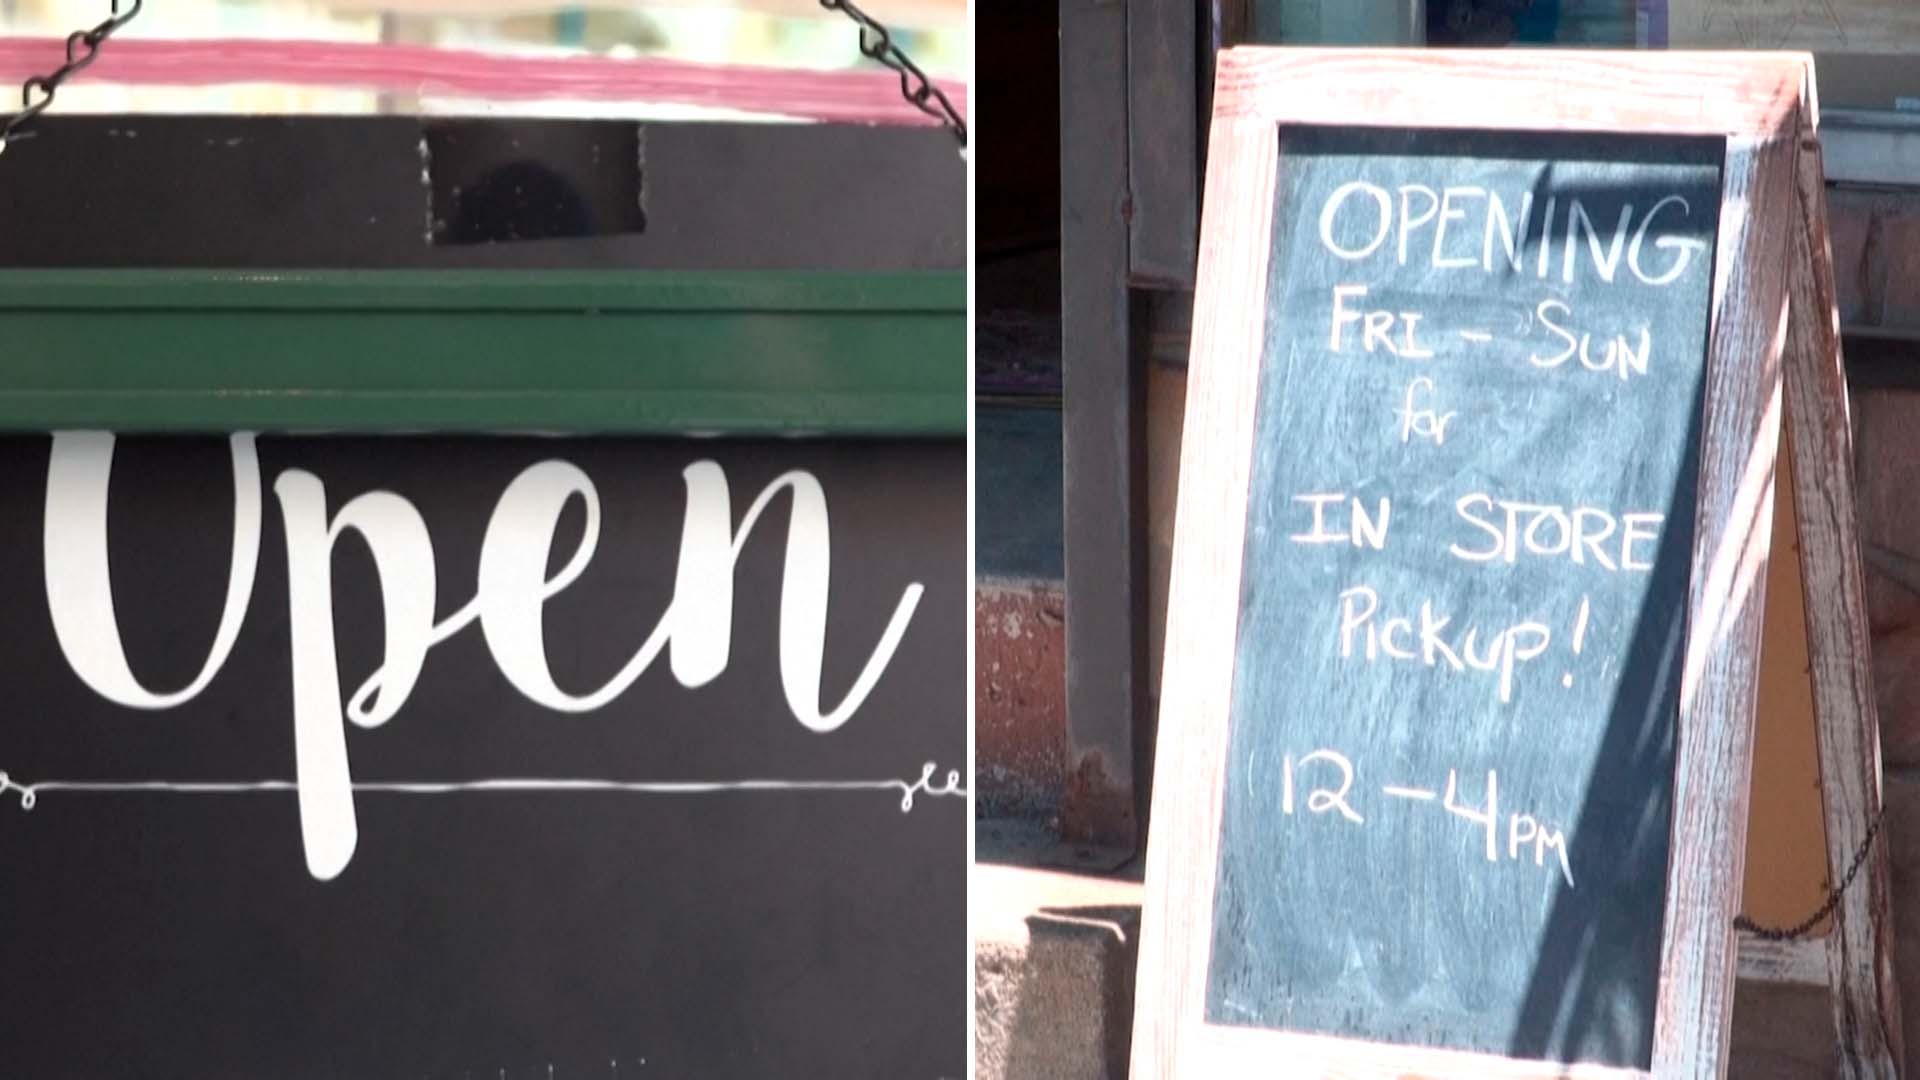 Open
OPENING
FRI - SUN
for
IN STORE
PICKUP!
12-4PM